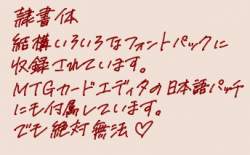 隷書体
結構いろいろなフォントパックに
収録されています。
MTGカードエディタの日本語パッチ
にも付属しています。
でも絶対無法♡